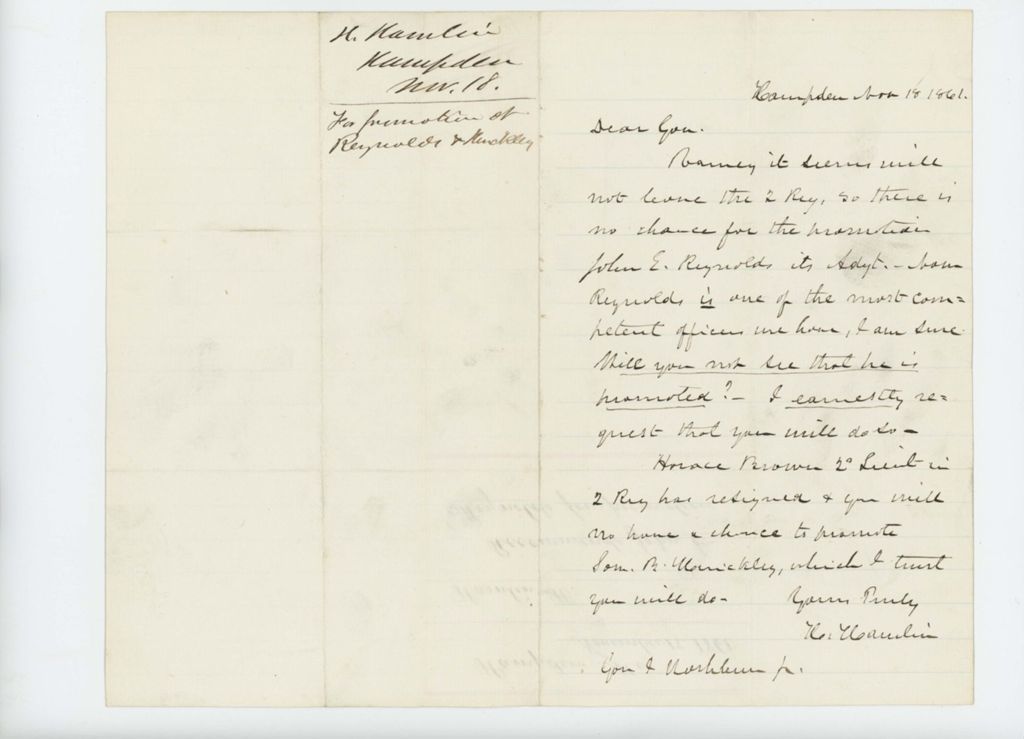 H. Hamlin
Hampden
Nov. 18.
For promotion of
Reynolds & Hinckley
Hampden Nov 18 1861.
Dear Gov.
Varney it seems will
not leave the 2 Reg, so there is
no chance for the promotion
John E. Reynolds its Adjt. - Now
Reynolds is one of the most com=
petent officers we have, I am sure
Will you not see that he is
promoted? - I earnestly re=
quest that you will do so -
Horace Brown 2d Lieut in
2 Reg has resigned & you will
now have a chance to promote
Sam. B. Hinckley, which I trust
you will do - Yours Truly
H. Hamlin
Gov I Washburn Jr.